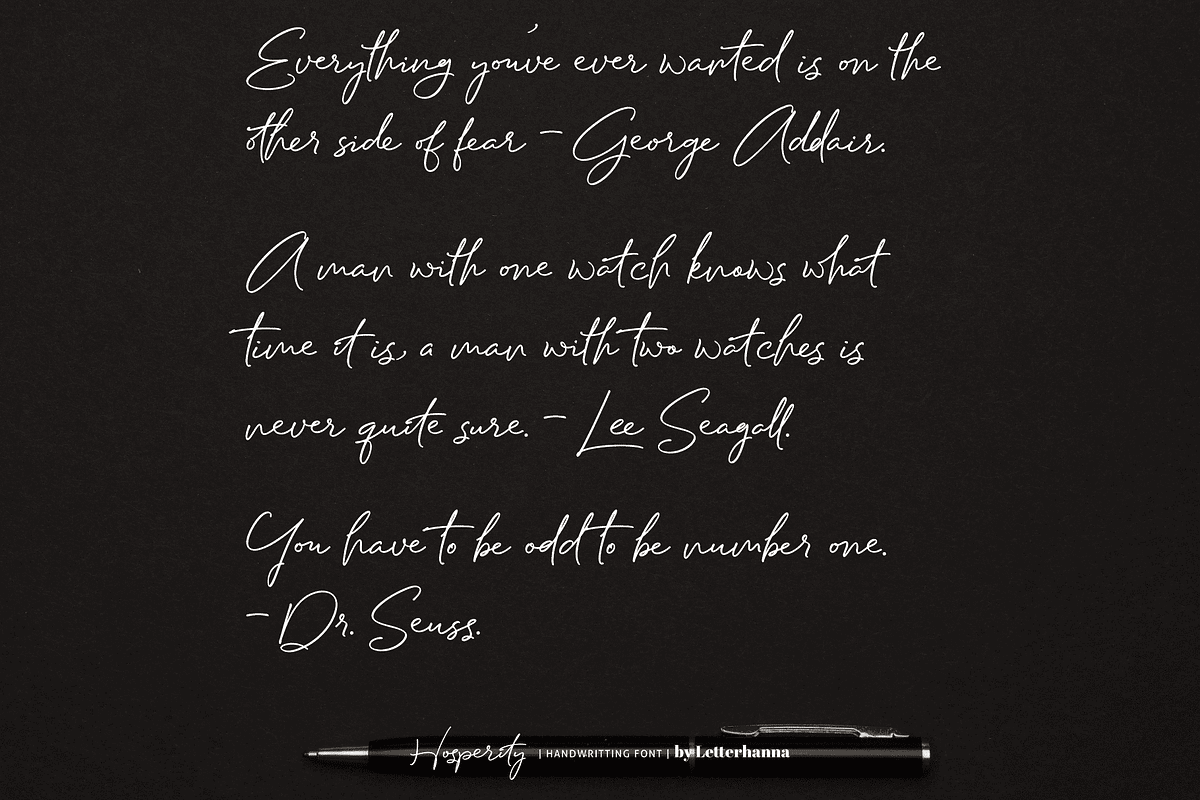 Everything you've ever wanted is on the
other side of fear - George Addair.
A man with one watch knows what
time it is, a man with two watches is
never quite sure. - Lee Seagall.
You have to be odd to be number one.
- Dr. Seuss.
Hosperity | HANDWRITTING FONT | by Letterhanna